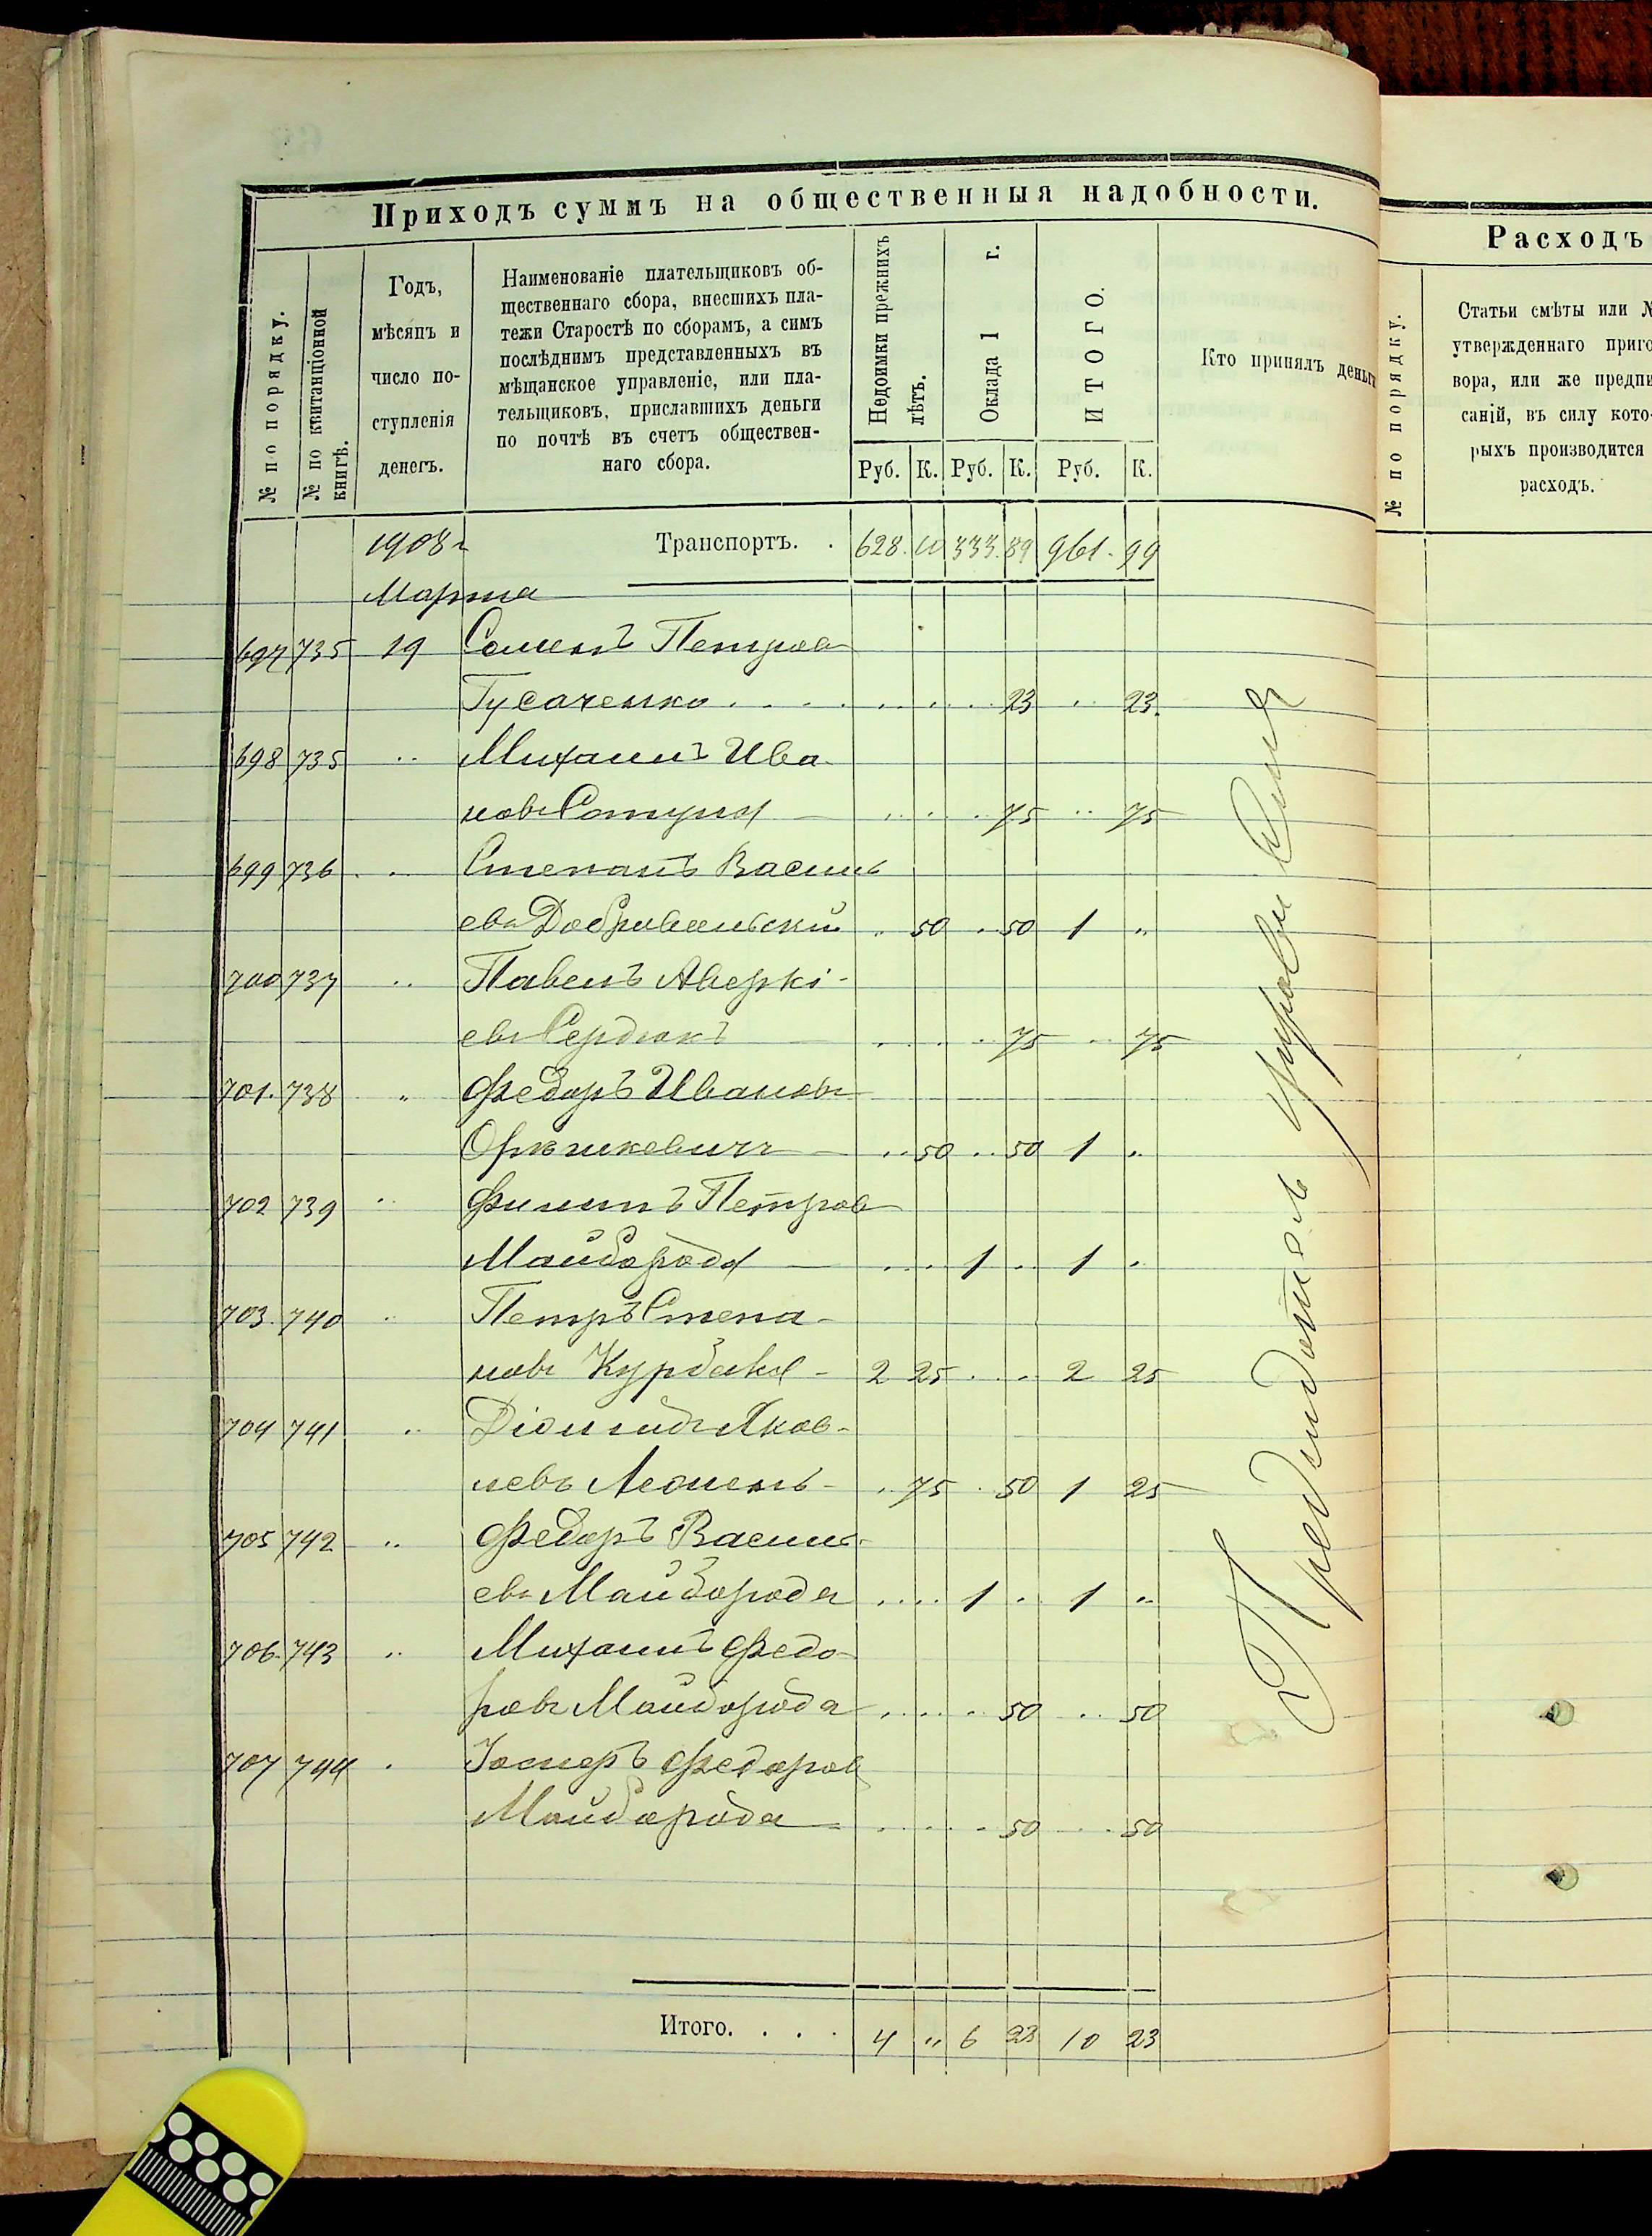 Приходъ суммъ на общественныя надобности.
№ по порядку.
№ по квитанціонной
книгѣ.
Годъ,
мѣсяцъ и
число по-
ступленія
денегъ.
Наименованіе плательщиковъ об-
щественнаго сбора, внесшихъ пла-
тежи Старостѣ по сборамъ, а симъ
послѣднимъ представленныхъ въ
мѣщанское управленіе, или пла-
тельщиковъ, приславшихъ деньги
по почтѣ въ счетъ обществен-
наго сбора.
Недоимки прежнихъ
лѣтъ.
Оклада 1 г.
ИТОГО.
Кто принялъ деньги
Руб. К. Руб. К. Руб. К.
1908 г Транспортъ. . 628. 10 333. 89 961. 99
Марта
697 735 19 Семенъ Петров
Гусаченко . . . . 23 .. 23.
698 735 .. Михаилъ Ива-
новъ 75 .. 75
699 736 .. Степанъ Василь
евъ 50 . 50 1 ..
700 737 .. Павелъ Аверкі-
евъ Сердюкъ 75 .. 75
701. 738 „ Федоръ Ивановъ
.. 50 .. 50 1 ..
702 739 .. Филипъ Петров
Майборода 1 .. 1 .
703. 740 .. Петръ Степа-
новъ 2 25 . . . 2 25
704 741 .. Діомидъ Яков-
левъ . 75 . 50 1 25
705 742 .. Федоръ Василь-
евъ Майборода .... 1 . 1 ..
706. 743 .. Михаилъ Федо-
ровъ Майборода 50 .. 50
707 744 . Іосифъ Федоров
Майборода 50 .. 50
Итого. . . . 4 „ 6 23 10 23
Предсидатель управы
Расходъ
№ по порядку.
Статьи смѣты или №
утвержденнаго приго-
вора, или же предпи-
саній, въ силу кото-
рыхъ производится
расходъ.